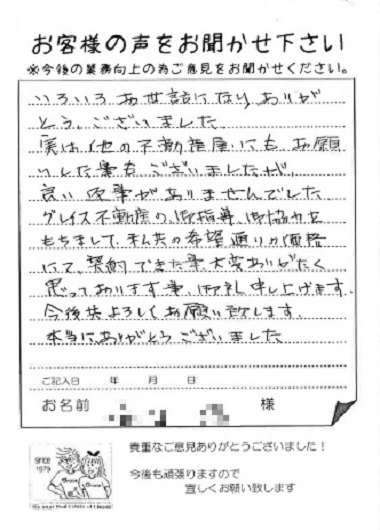 お客様の声をお聞かせ下さい
※今後の業務向上の為ご意見をお聞かせください。
いろいろお世話になり、ありが
とうございました
実は他の不動産屋にもお願
いした事もございましたが、
良い返事がありませんでした
グレイス不動産の、御指導、御協力を
もちまして、私共の希望通りの価格
にて、契約できた事、大変ありがたく
思っております事、御礼申し上げます。
今後共よろしくお願い致します。
本当にありがとうございました
ご記入日 年 月 日
お名前 様
貴重なご意見ありがとうございました!
今後も頑張りますので
宜しくお願い致します
SINCE
1979